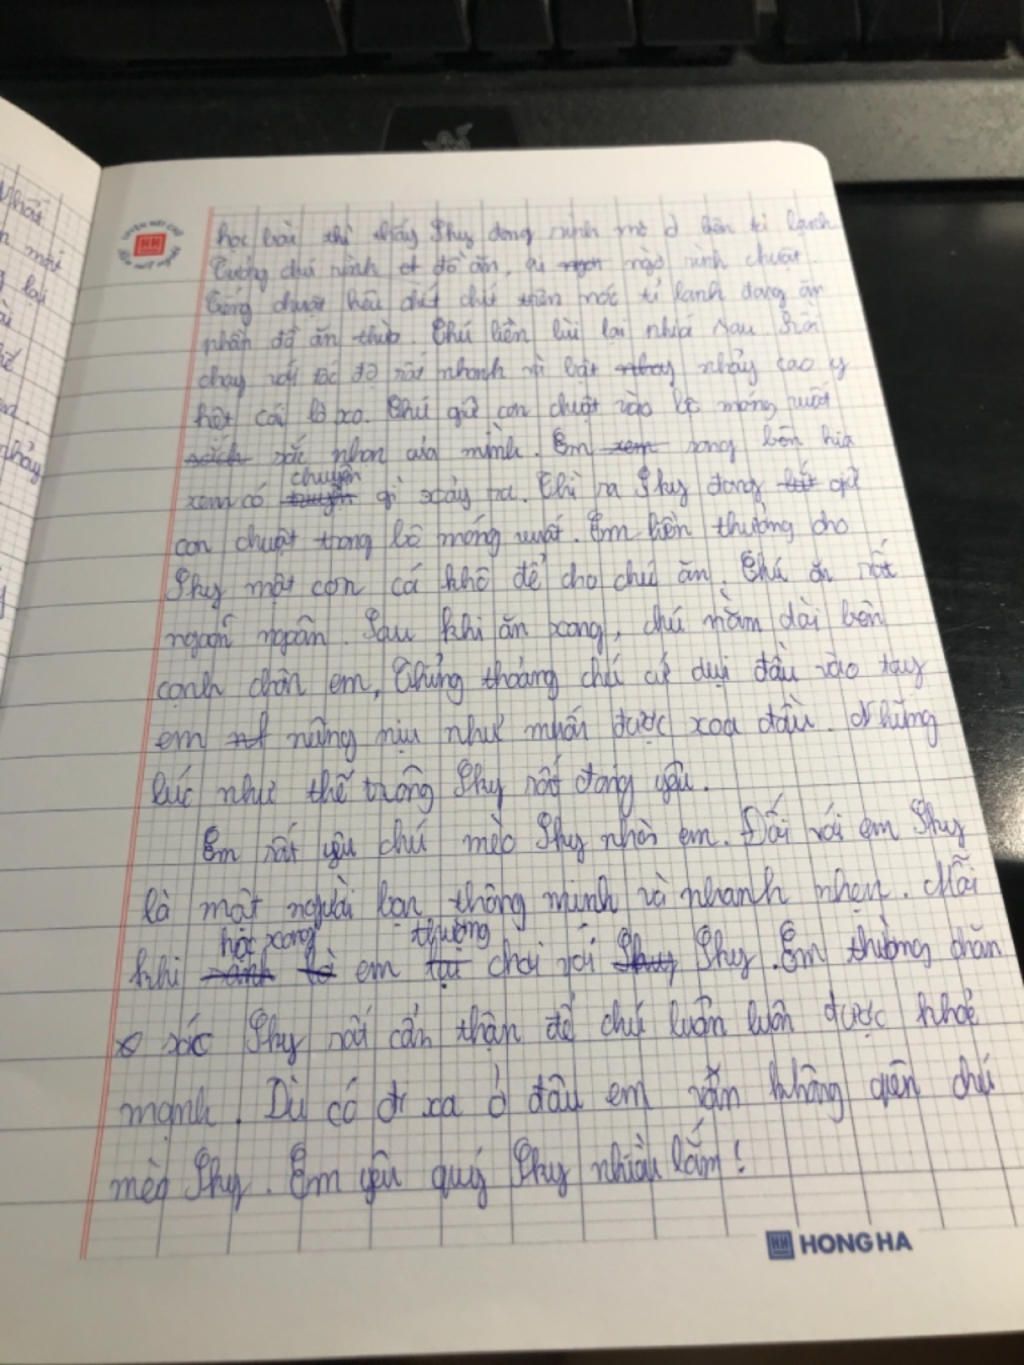 học bài thì thấy Shy đang rình mò ở bên tủ lạnh
Tưởng chú rình đồ ăn, ai ngờ rình chuột.
Công chuột hẫu chít chít trên nóc tủ lạnh đang ăn
nhầm đồ ăn thừa. Chú liền lùi lại phía sau. Rồi
chạy với tốc độ rất nhanh và bật nhảy cao y
hệt cái lò xo. Chú giữ con chuột vào lộ móng vuốt
sắc nhọn của mình. Em sang bên kia
xem có chuyện gì xảy ra. Thì ra Shy đang giữ
con chuột trong bộ móng vuốt. Em liền thưởng cho
Shy một con cá khô để cho chú ăn. Chú ăn rất
ngon ngoãn. Sau khi ăn xong, chú nằm dài bên
cạnh chân em, Thỉnh thoảng chú cứ dụi đầu vào tay
em nũng nịu như muốn được xoa đầu. Những
lúc như thế trông Shy rất đáng yêu.
Em rất yêu chú mèo Shy nhà em. Đối với em Shy
là một người bạn thông minh và nhanh nhẹn. Mỗi
khi học xong em thường chơi với Shy. Em thường chăn
sóc Shy rất cẩn thận để chú luôn luôn được khoẻ
mạnh. Dù có đi xa ở đâu em vẫn không quên chú
mèo Shy. Em yêu quý Shy nhiều lắm!
HONG HA